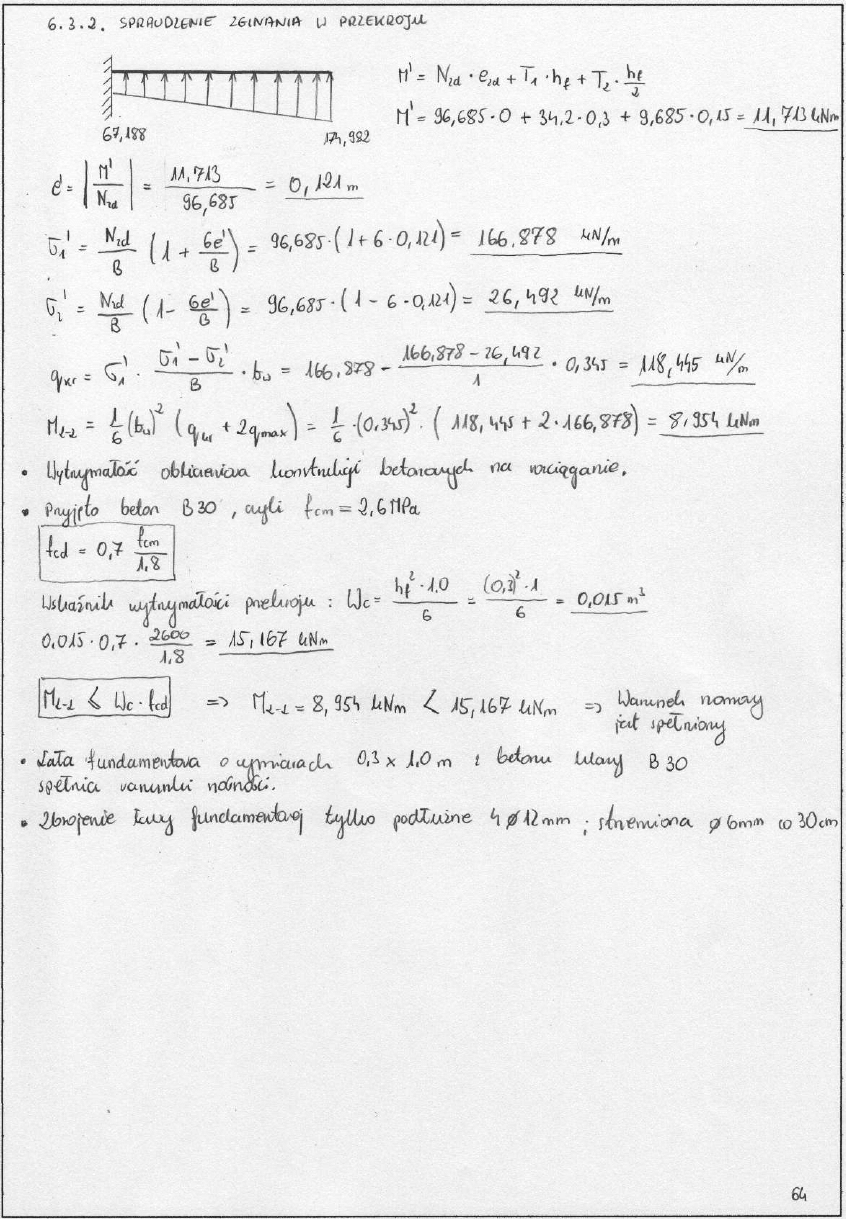 6.3.2. SPRAWDZENIE ZGINANIA W PRZEKROJU
67,188
174,982
M' = N₂d · e₂d + T₁ · hf + T₂ · hf/2
M' = 96,685·0 + 34,2·0,3 + 9,685·0,15 = 11,713 kNm
e' = |M'/N₂d| = 11,713/96,685 = 0,121 m
σ₁' = N₂d/B (1 + 6e'/B) = 96,685·(1+6·0,121) = 166,878 kN/m
σ₂' = N₂d/B (1 - 6e'/B) = 96,685·(1 - 6·0,121) = 26,492 kN/m
qkr = σ₁' · σ₁' - σ₂'/B · bw = 166,878 - 166,878 - 26,492/1 · 0,345 = 118,445 kN/m
M₂₋₂ = 1/6 (bw)² (qkr + 2qmax) = 1/6 ·(0,345)² · (118,445 + 2·166,878) = 8,954 kNm
• Wytrzymałość obliczeniowa konstrukcji betonowych na rozciąganie.
• Przyjęto beton B30, czyli fcm = 2,6 MPa
fcd = 0,7 fcm/1,8
Wskaźnik wytrzymałości przekroju : Wc = hf²·1,0/6 = (0,3)²·1/6 = 0,015 m³
0,015·0,7 · 2600/1,8 = 15,167 kNm
M₂₋₂ ≤ Wc · fcd => M₂₋₂ = 8,954 kNm < 15,167 kNm => Warunek nomowy
jest spełniony
• Ława fundamentowa o wymiarach 0,3 x 1,0 m z betonu klasy B30
spełnia warunki nośności.
• Zbrojenie ławy fundamentowej tylko podłużne 4 ø 12 mm ; strzemiona ø 6mm co 30 cm
64